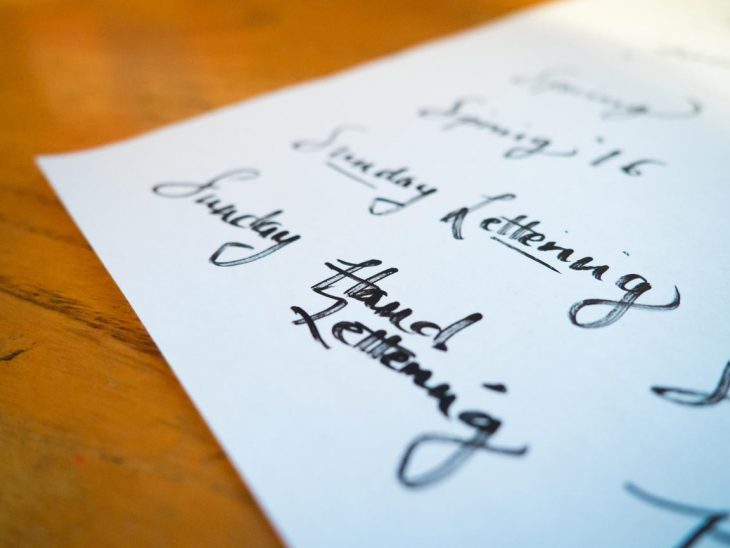 Spring
Spring '16
Sunday Lettering
Sunday Hand
Lettering